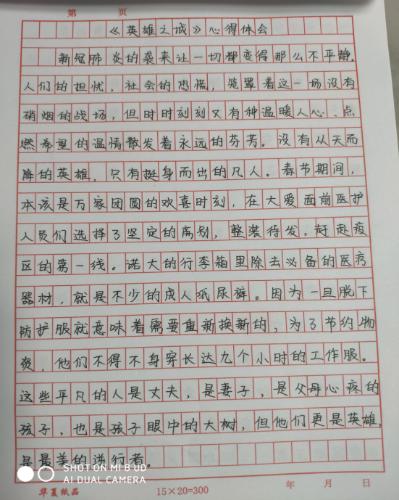 第 页
《英雄之城》心得体会
新冠肺炎的袭来让一切都变得那么不平静,
人们的担忧,社会的恐慌,笼罩着这一场没有
硝烟的战场,但时时刻刻又有种温暖人心、点
燃希望的温情散发着永远的芬芳。没有从天而
降的英雄,只有挺身而出的凡人。春节期间,
本该是万家团圆的欢喜时刻,在大爱面前医护
人员们选择了坚定的离别,整装待发,赶赴疫
区的第一线。诺大的行李箱里除去必备的医疗
器材,就是不少的成人纸尿裤。因为一旦脱下
防护服就意味着需要重新换新的,为了节约物
资,他们不得不身穿长达九个小时的工作服。
这些平凡的人是丈夫,是妻子,是父母心疼的
孩子,也是孩子眼中的大树,但他们更是英雄,
是最美的逆行者。
华夏纸品 15×20=300 年 月 日
SHOT ON MI 8 UD
AI DUAL CAMERA